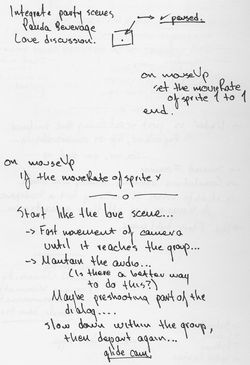 Integrate party scenes
Panda Beverage
Love discussion.
✓ paused.
on mouseUp
set the movieRate
of sprite 1 to 1
end.
on mouseUp
if the movieRate of sprite x
Start like the love scene...
→ Fast movement of camera
until it reaches the group...
→ Mantain the audio...
(Is there a better way
to do this?)
Maybe preshooting part of the
dialog....
slow down within the group,
then depart again...
glide cam!